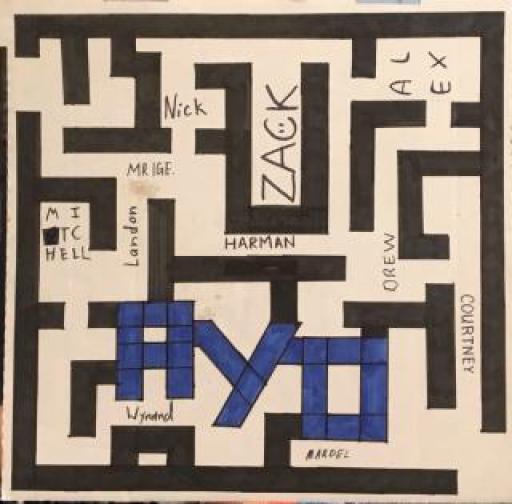 A L
E X
Nick
ZACK
MR IGE.
M I
TC
HELL
Landon
HARMAN
DREW
COURTNEY
AYO
Wynand
MARDEL